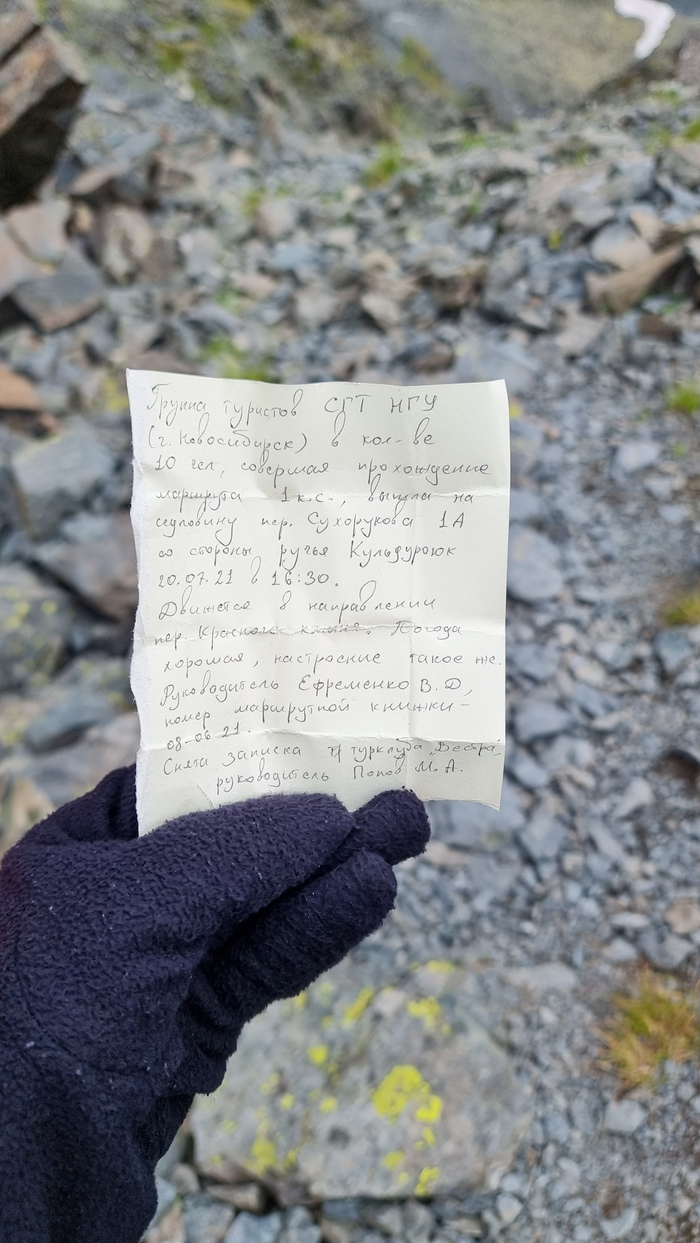 Группа туристов СГТ НГУ
(г. Новосибирск) в кол-ве
10 чел, совершая прохождение
маршрута 1 к.с., вышла на
седловину пер. Сухорукова 1А
со стороны ручья Кульдуроюк
20.07.21 в 16:30.
Движется в направлении
пер. Красного камня. Погода
хорошая, настроение такое же.
Руководитель Ефременко В. Д,
номер маршрутной книжки -
08-06-21.
Снята записка т/г турклуба "Вестра,
руководитель Попов М. А.